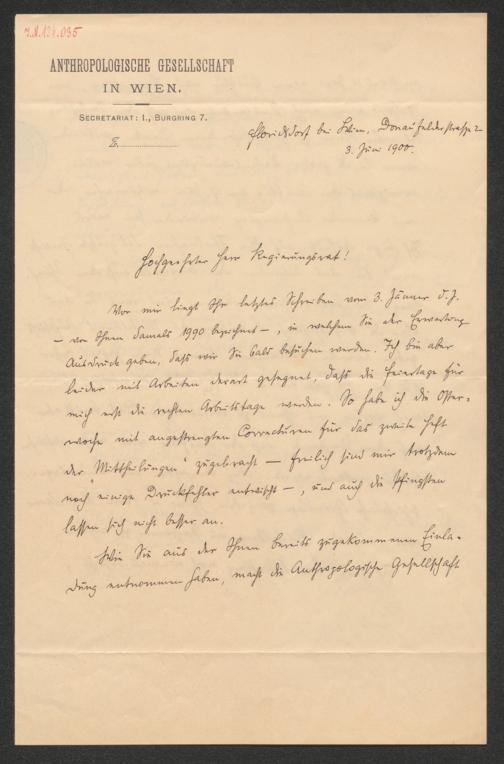 ANTHROPOLOGISCHE GESELLSCHAFT
IN WIEN.
SECRETARIAT: I., BURGRING 7.
Z.
Floridsdorf bei Wien, Donaufelderstraße 2
3. Juni 1900.
Hochgeehrter Herr Regierungsrat!
Vor mir liegt Ihr letztes Schreiben vom 3. Jänner d. J.
— von Ihnen damals 1990 bezeichnet —, in welchem Sie der Erwartung
Ausdruck geben, daß wir Sie bald besuchen werden. Ich bin aber
leider mit Arbeiten derart gesegnet, daß die Feiertage für
mich erst die rechten Arbeitstage werden. So habe ich die Oster-
woche mit angestrengten Correcturen für das zweite Heft
der „Mittheilungen" zugebracht — freilich sind mir trotzdem
noch einige Druckfehler entwischt —, und auch die Pfingsten
lassen sich nicht besser an.
Wie Sie aus der Ihnen bereits zugekommenen Einla-
dung entnommen haben, macht die Anthropologische Gesellschaft